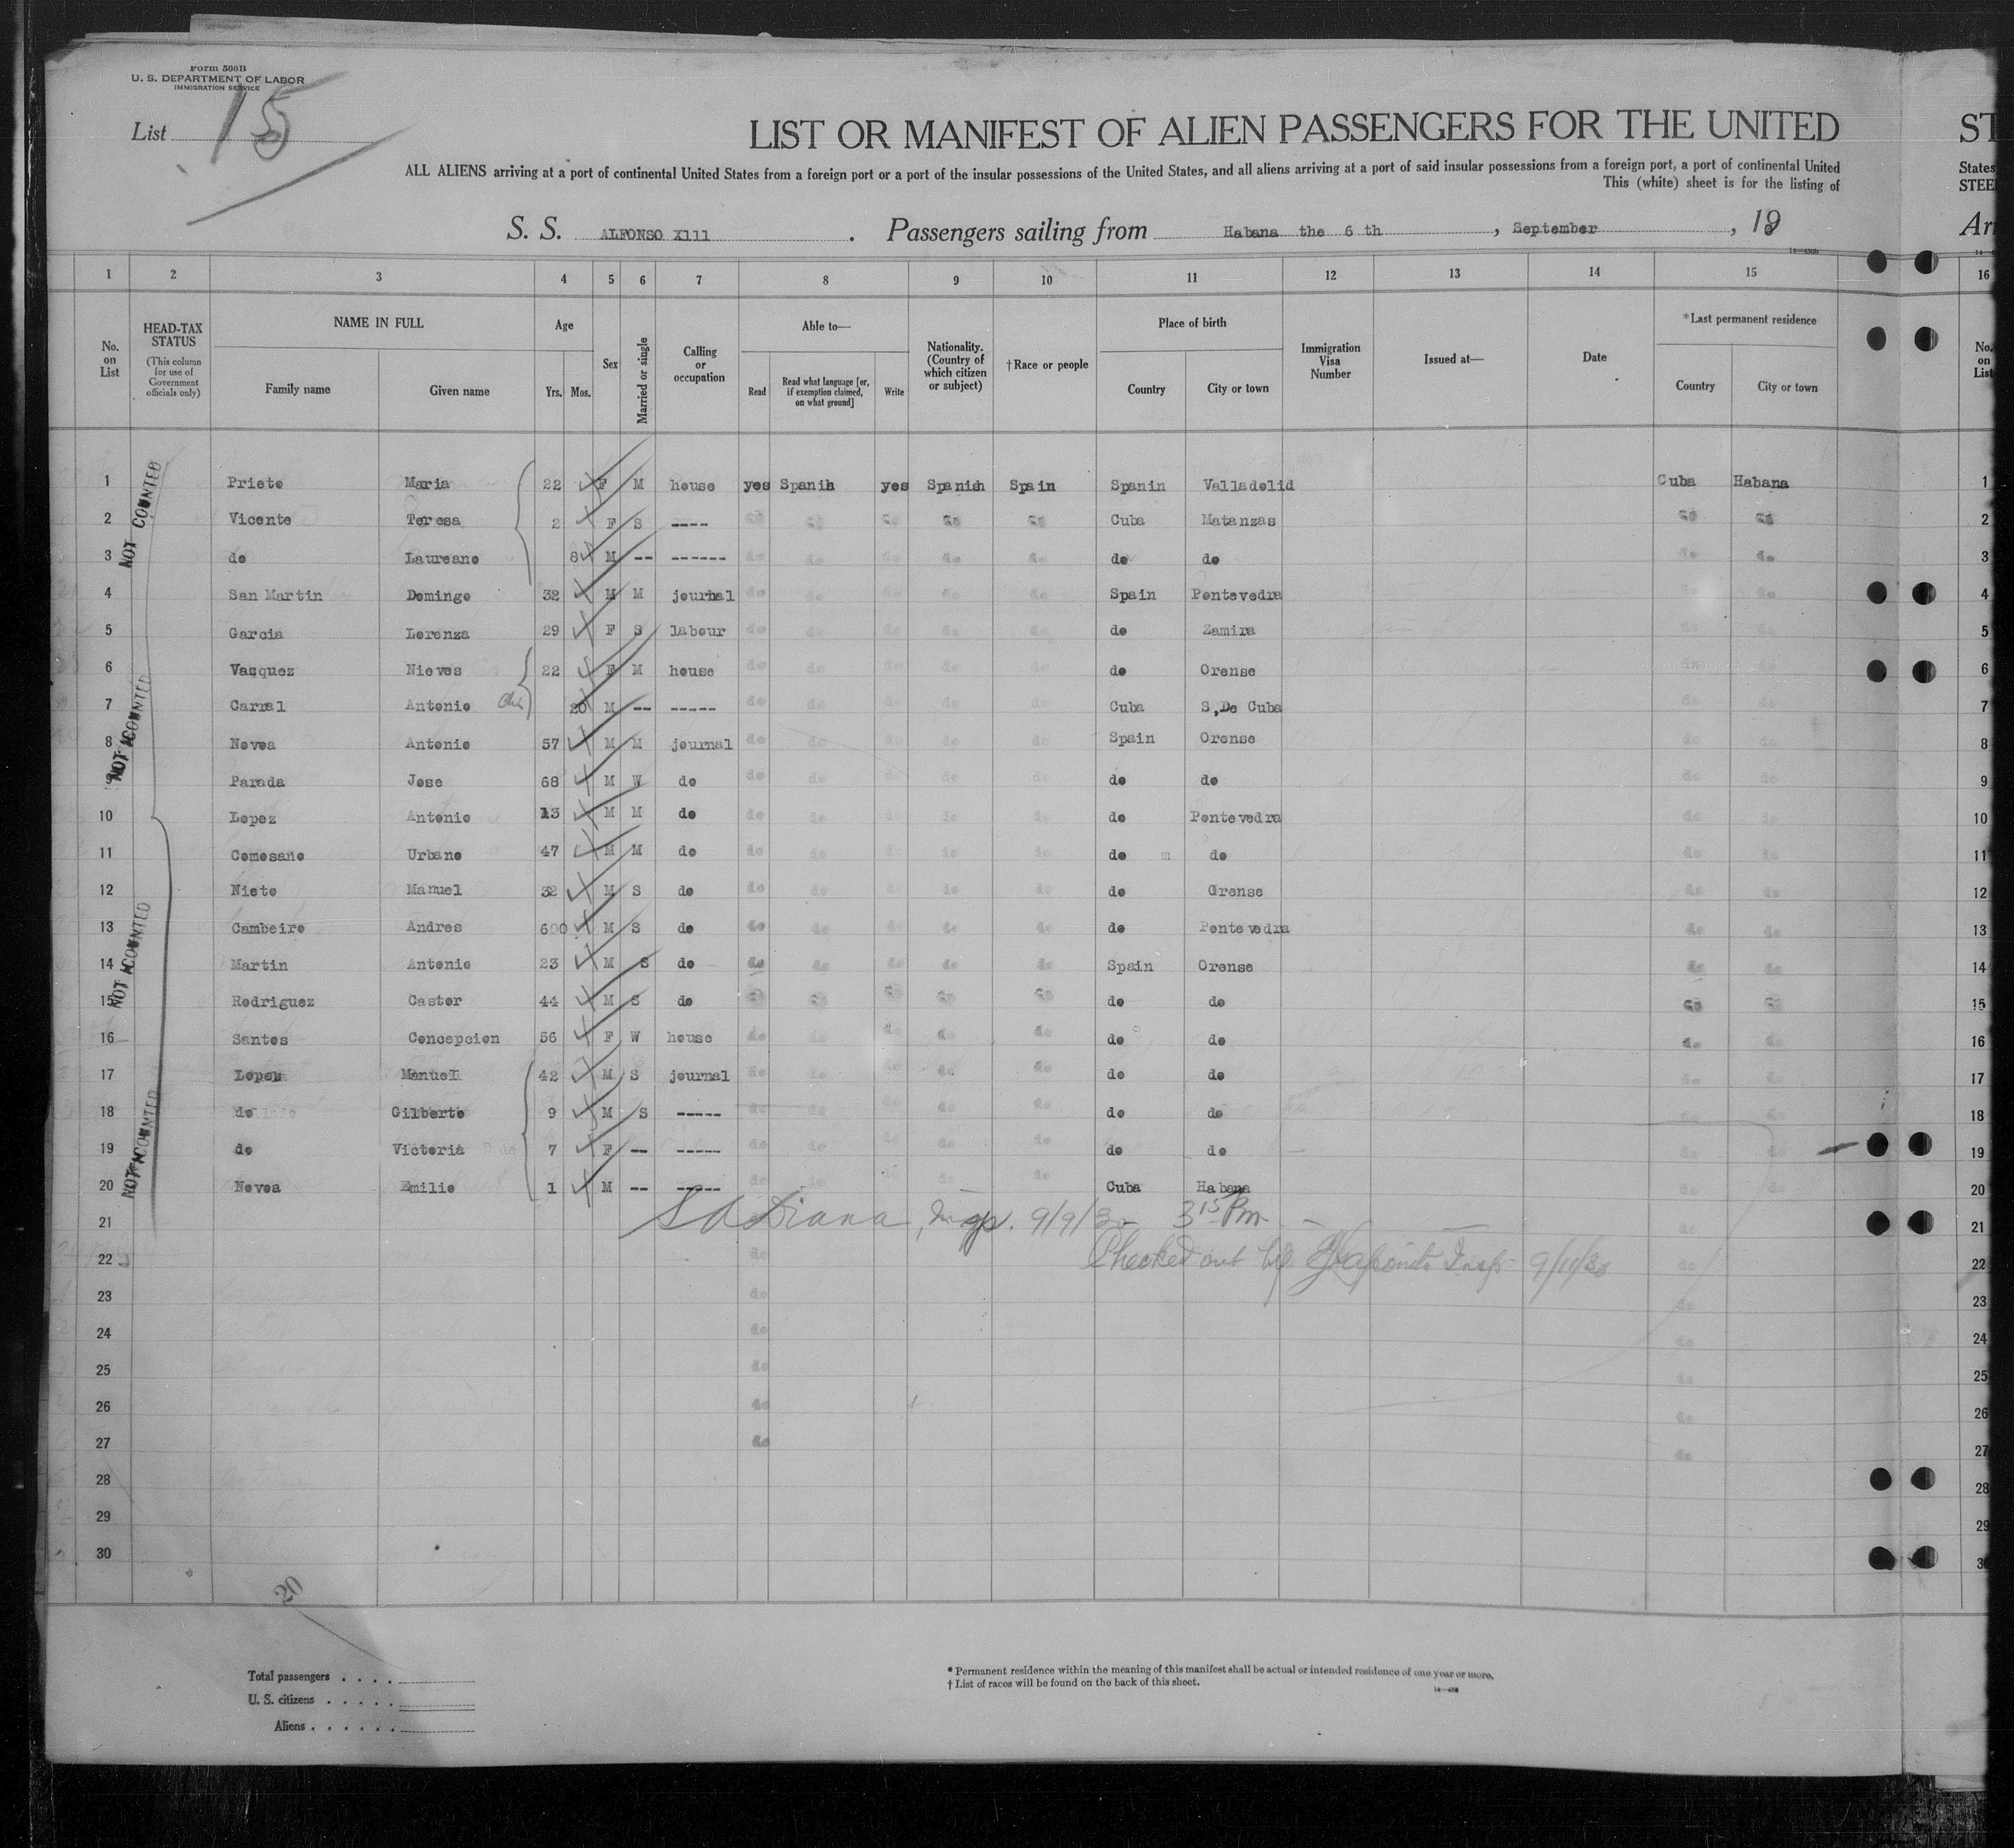 Form 500B
U. S. DEPARTMENT OF LABOR
IMMIGRATION SERVICE
List 15
LIST OR MANIFEST OF ALIEN PASSENGERS FOR THE UNITED
ST
ALL ALIENS arriving at a port of continental United States from a foreign port or a port of the insular possessions of the United States, and all aliens arriving at a port of said insular possessions from a foreign port, a port of continental United
States
This (white) sheet is for the listing of
STEE
S. S. ALFONSO X111 . Passengers sailing from Habana the 6 th , September , 19
Ar
1 2 3 4 5 6 7 8 9 10 11 12 13 14 15 16
No. on List
HEAD-TAX STATUS
(This column for use of Government officials only)
NAME IN FULL
Family name Given name
Age
Yrs. Mos.
Sex
Married or single
Calling or occupation
Able to—
Read
Read what language [or, if exemption claimed, on what ground]
Write
Nationality. (Country of which citizen or subject)
†Race or people
Place of birth
Country City or town
Immigration Visa Number
Issued at—
Date
*Last permanent residence
Country City or town
No. on List
1 Prieto Maria 22 F M house yes Spanih yes Spanish Spain Spanin Valladolid Cuba Habana 1
2 Vicente Teresa 2 F S ---- do do do do do Cuba Matanzas do do 2
3 do Laureano 8 M -- ------ do do do do do do do do do 3
4 San Martin Domingo 32 M M journal do do do do do Spain Pontevedra do do 4
5 Garcia Lorenza 29 F S labour do do do do do do Zamira do do 5
6 Vazquez Nieves 22 F M house do do do do do do Orense do do 6
7 Carral Antonio 20 M -- ----- do do do do do Cuba S,De Cuba do do 7
8 Novoa Antonio 57 M M journal do do do do do Spain Orense do do 8
9 Parada Jose 68 M W do do do do do do do do do do 9
10 Lopez Antonio 13 M M do do do do do do do Pontevedra do do 10
11 Comesaño Urbano 47 M M do do do do do do do m do do do 11
12 Nieto Manuel 32 M S do do do do do do do Orense do do 12
13 Cambeiro Andres 600 M S do do do do do do do Pontevedra do do 13
14 Martin Antonio 23 M S do do do do do do Spain Orense do do 14
15 Rodriguez Castor 44 M S do do do do do do do do do do 15
16 Santos Concepcion 56 F W house do do do do do do do do do 16
17 Lopez Manuel 42 M S journal do do do do do do do do do 17
18 do Gilberto 9 M S ----- do do do do do do do do do 18
19 do Victoria 7 F -- ----- do do do do do do do do do 19
20 Novoa Emilio 1 M -- ----- do do do do do Cuba Habana do do 20
21 Insp. 9/9/30 3 15 Pm do 21
22 do Checked out by Insp 9/11/30 do 22
23 do do 23
24 do do 24
25 do do 25
26 do do 26
27 do do 27
28 28
29 29
30 30
NOT COUNTED
NOT COUNTED
NOT COUNTED
NOT COUNTED
20
Total passengers . . . .
U. S. citizens . . . . .
Aliens . . . . . .
* Permanent residence within the meaning of this manifest shall be actual or intended residence of one year or more.
† List of races will be found on the back of this sheet.